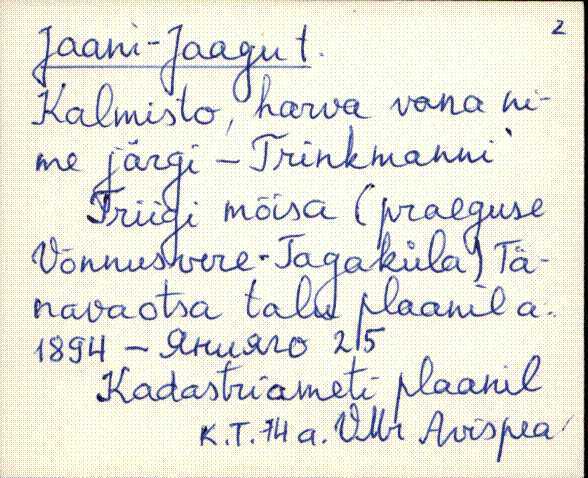 2
Jaani-Jaagu t.
Kalmisto, harva vana ni-
me järgi - Trinkmanni
Triigi mõisa (praeguse
Võnnusvere-Tagaküla) Tä-
navaotsa talu plaanil a.
1894 - Януяго 25
Kadastriameti plaanil
K.T. 74 a. VMr Avispea